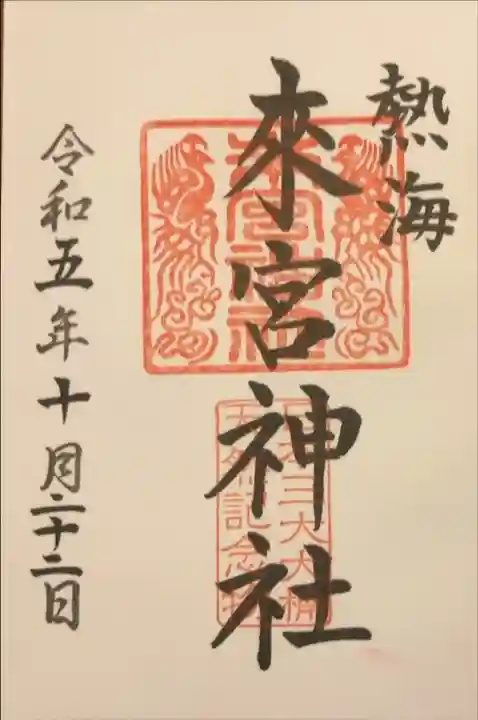 熱海
來宮神社
來宮神社
日本三大大楠
天然記念物
令和五年十月二十二日